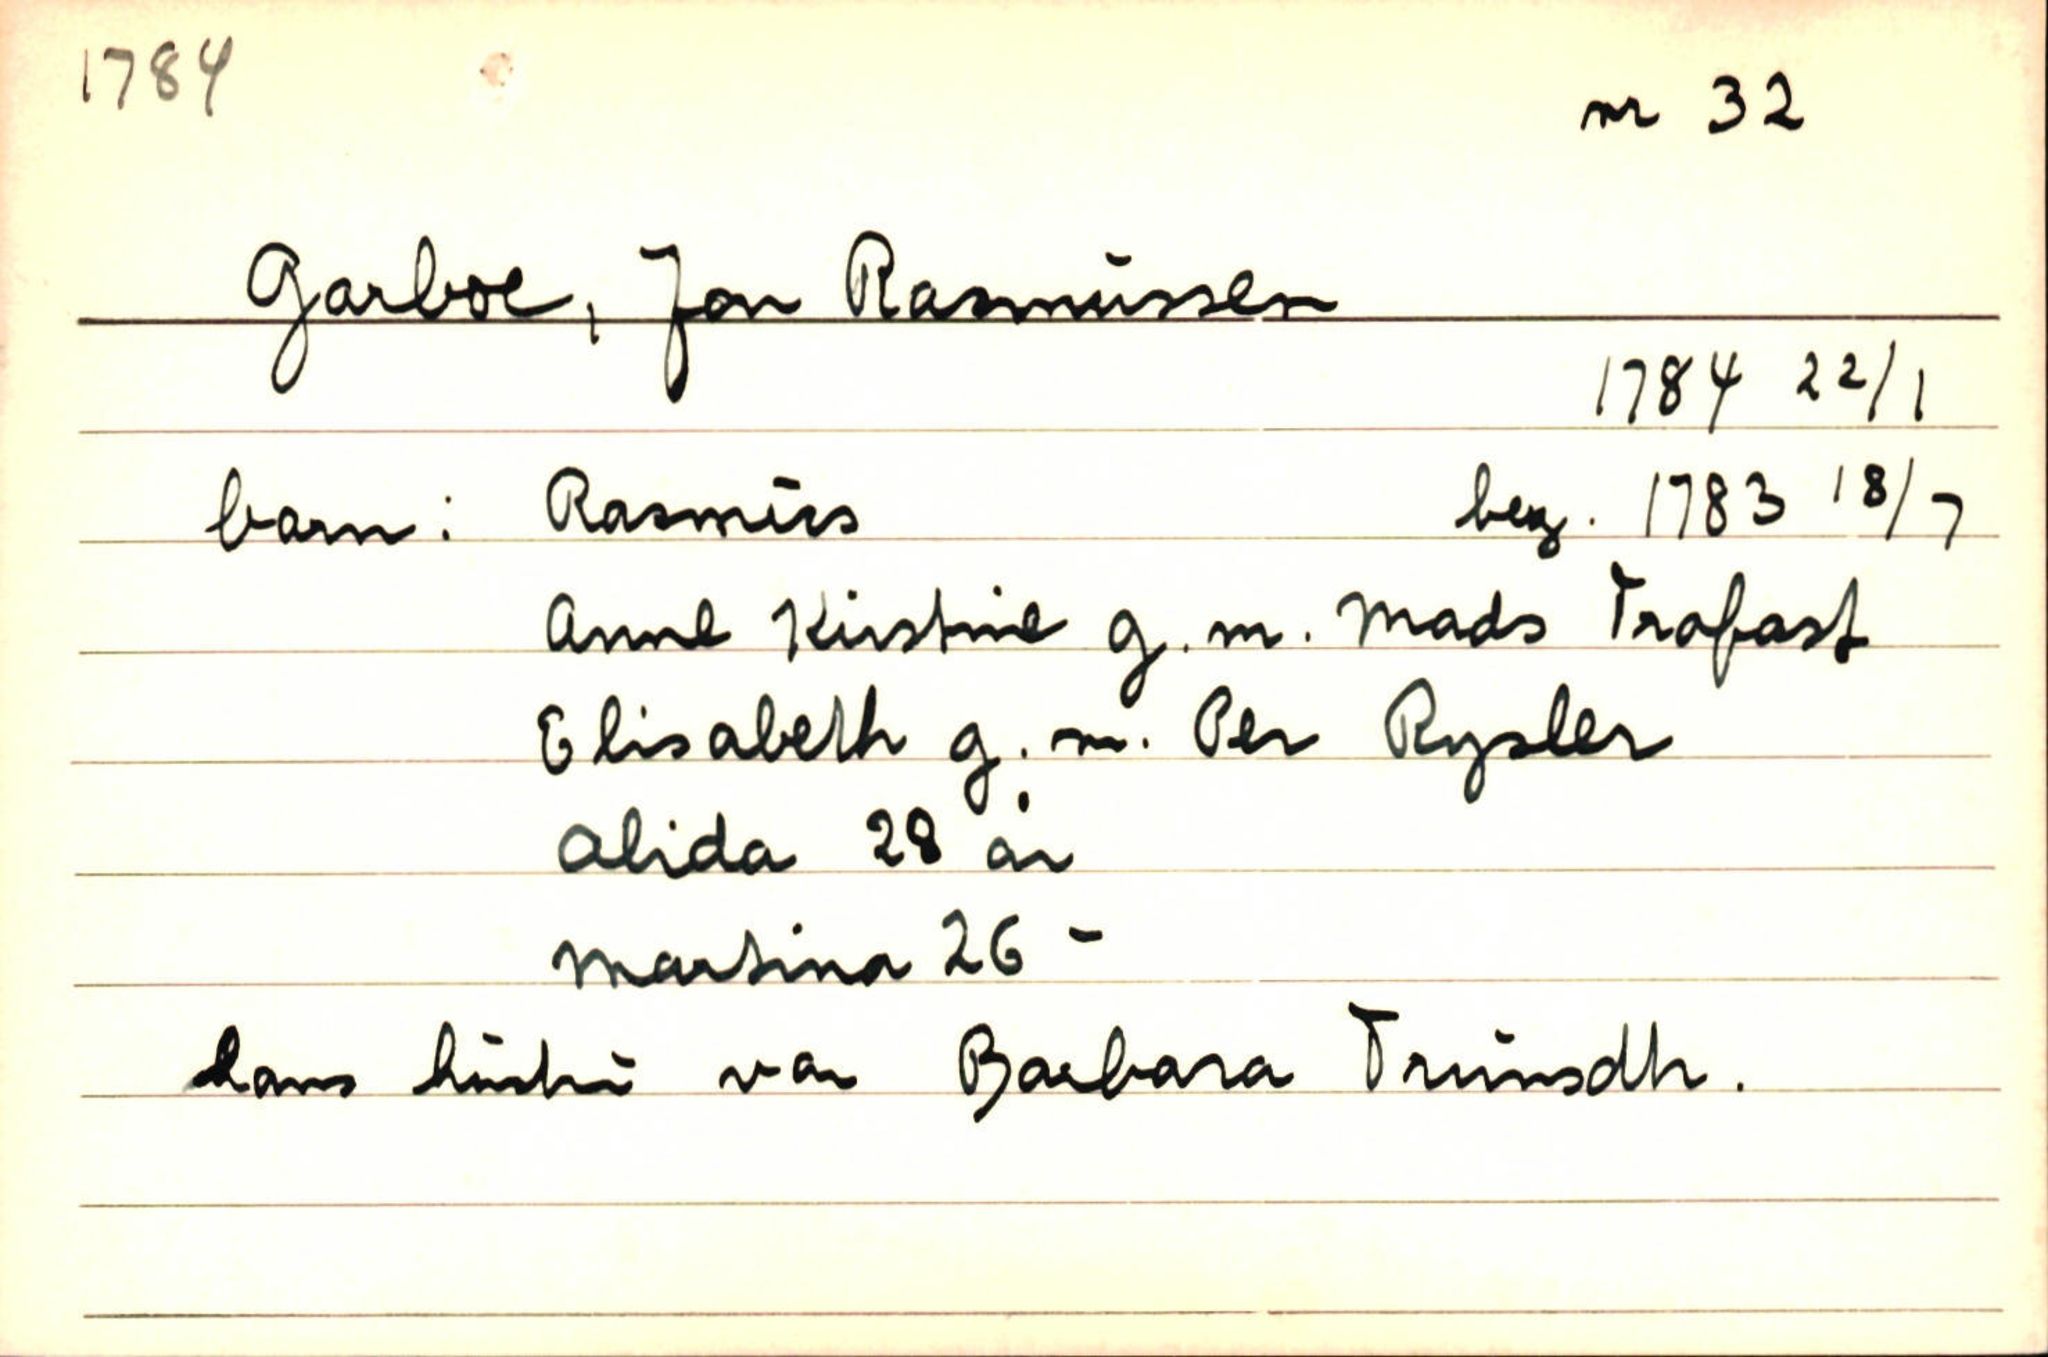 1784
nr 32
Garboe, Jon Rasmussen
1784 22/1
barn: Rasmus beg. 1783 18/7
Anne Kirstine g.m. Mads Trofast
Elisabeth g.m. Per Rysler
Alida 28 år
Martina 26 -
hans hustru var Barbara Trunsdtr.